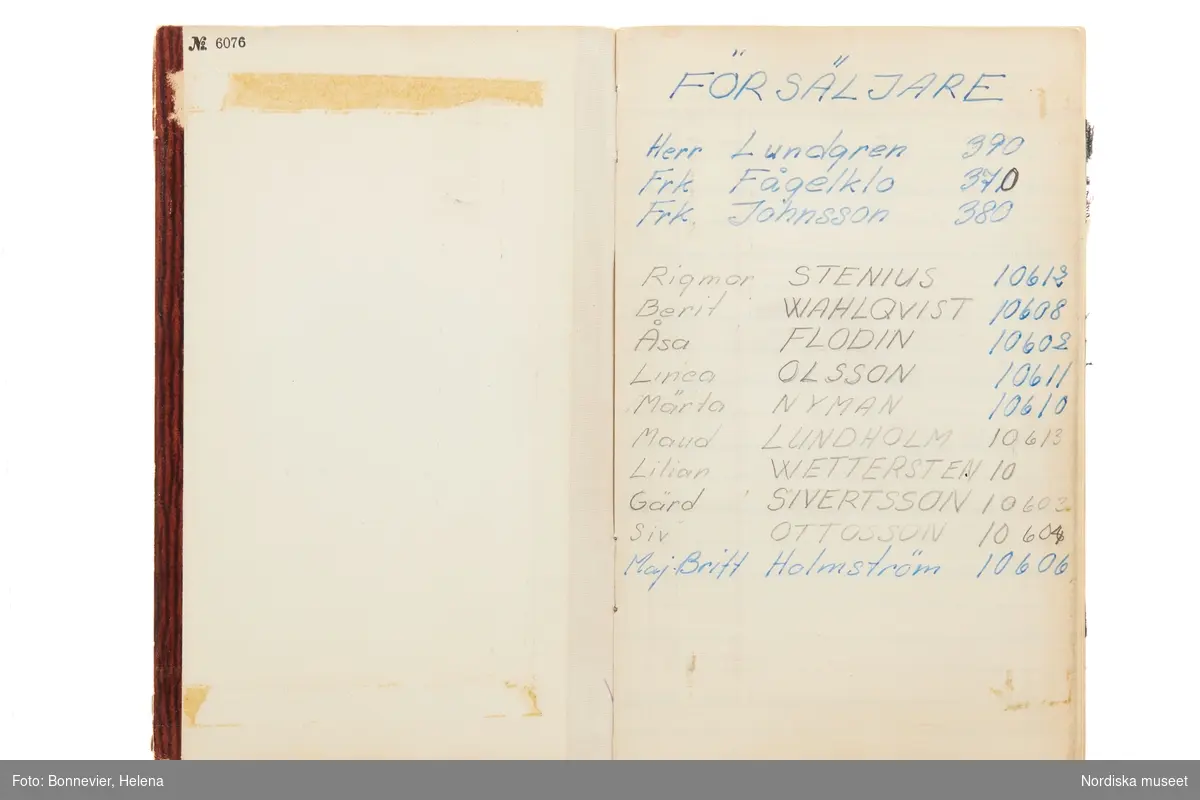 № 6076
FÖRSÄLJARE
Herr Lundgren 390
Frk. Fågelklo 370
Frk. Johnsson 380
Rigmor STENIUS 10612
Berit WAHLQVIST 10608
Åsa FLODIN 10602
Linea OLSSON 10611
Märta NYMAN 10610
Maud LUNDHOLM 10613
Lilian WETTERSTEN 10
Gärd SIVERTSSON 10603
Siv OTTOSSON 10604
Maj-Britt Holmström 10606
Foto: Bonnevier, Helena
Nordiska museet